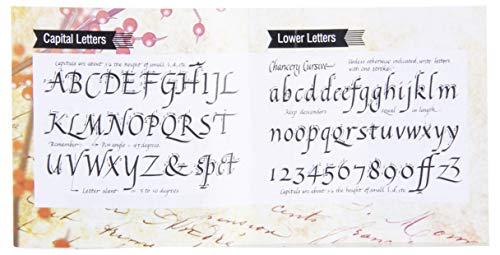 Capital Letters
Capitals are about 7½ the height of small l, d, etc.
ABCDEFGHIJL
KLMNOPQRST
Remember Pen angle = 45 degrees.
UVWXYZ& sp ct
Letter slant = 5 to 10 degrees
Lower Letters
Chancery Cursive
Unless otherwise indicated, write letters
with one stroke.
abcddeefgghijklm
keep descenders equal in length.
noopqqrstuvwxyy
1234567890 ff z3
Capitals are about 7½ the height of small l, d, etc.
cento